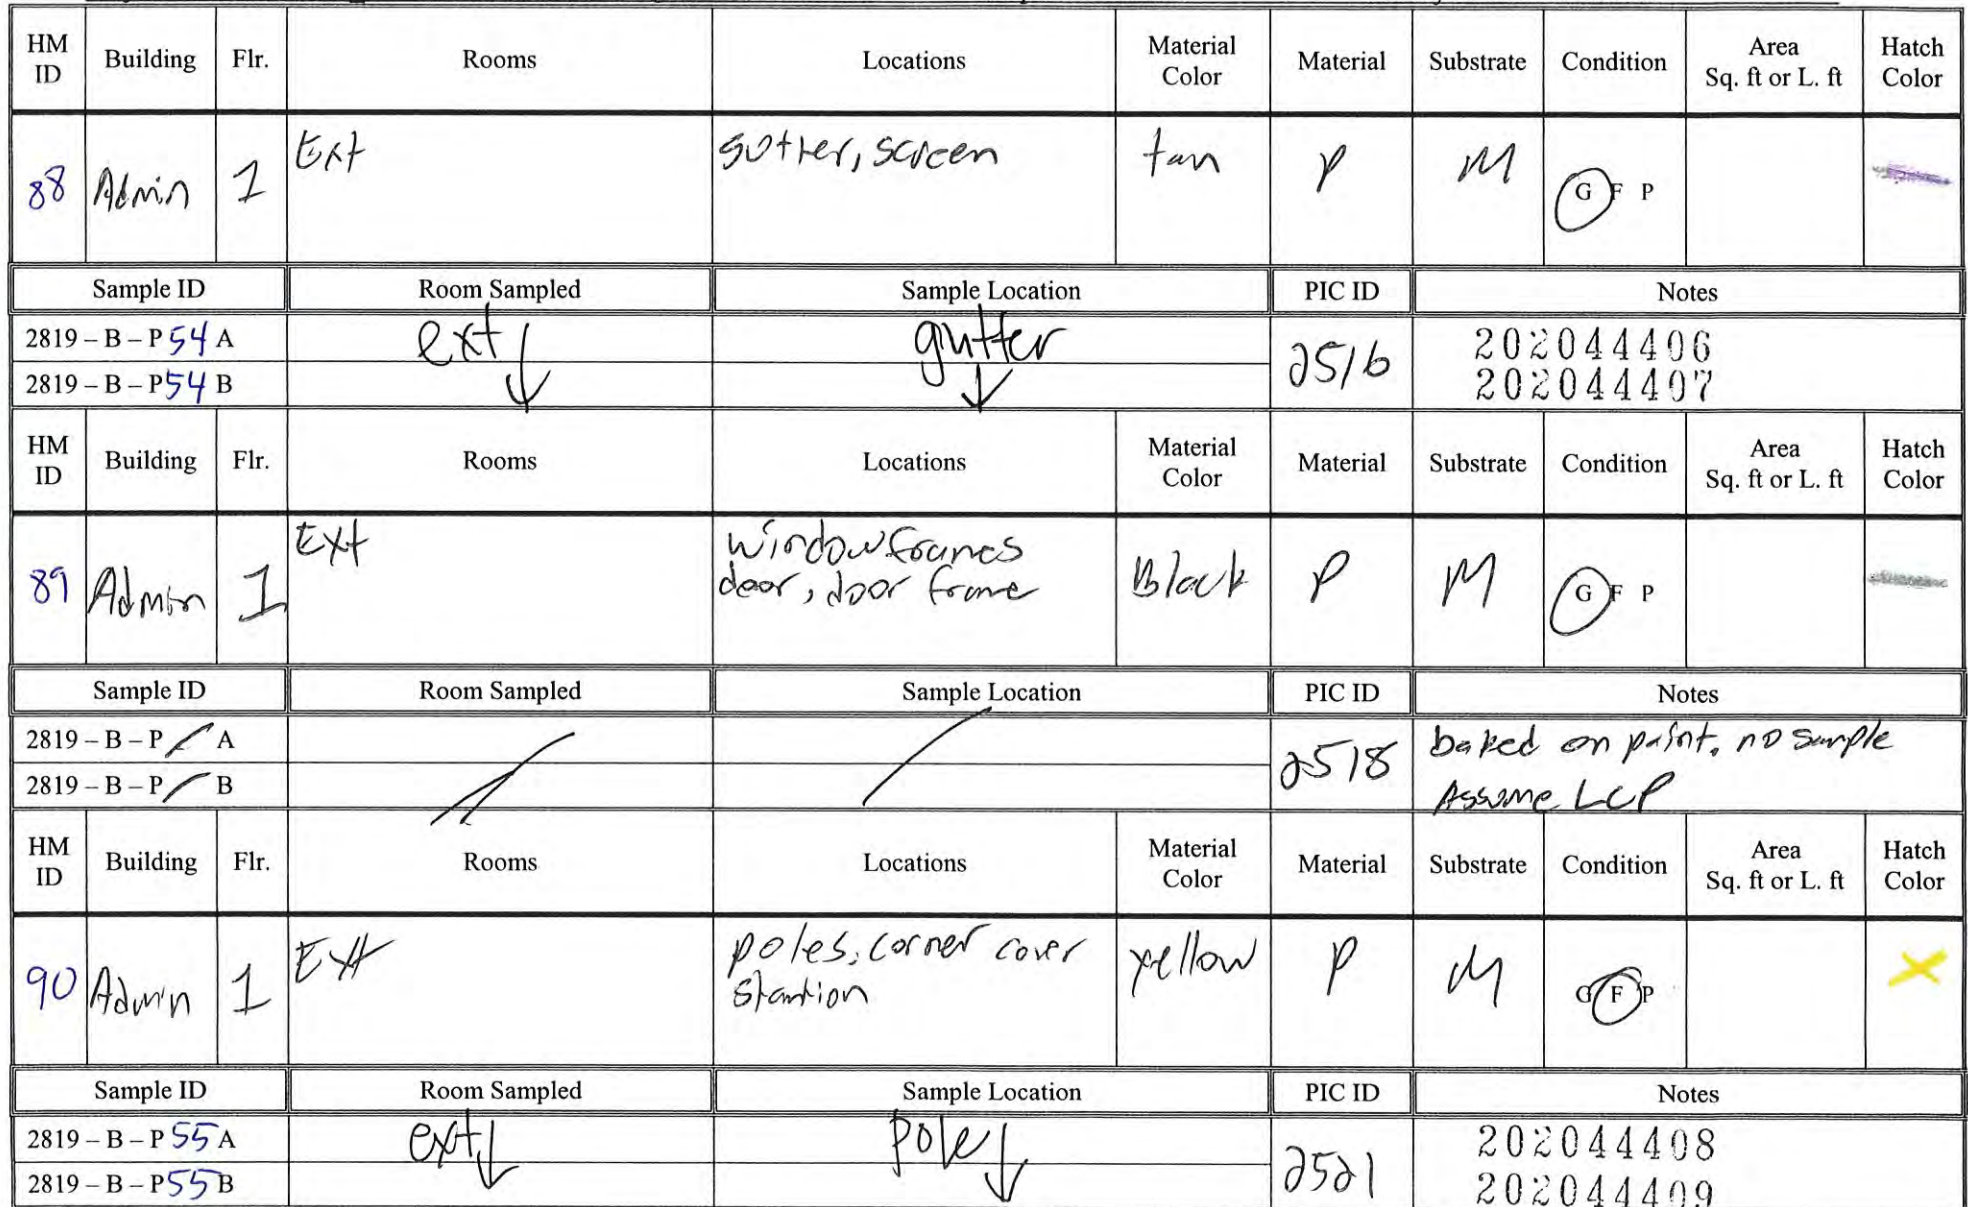 HM ID Building Flr. Rooms Locations Material Color Material Substrate Condition Area Sq. ft or L. ft Hatch Color
88 Admin 1 Ext gutter, screen tan P M G F P
Sample ID Room Sampled Sample Location PIC ID Notes
2819 – B – P 54 A ext gutter 2516 202044406
2819 – B – P 54 B 202044407
HM ID Building Flr. Rooms Locations Material Color Material Substrate Condition Area Sq. ft or L. ft Hatch Color
89 Admin 1 Ext window frames Black P M G F P
door, door frame
Sample ID Room Sampled Sample Location PIC ID Notes
2819 – B – P A 2518 baked on paint, no sample
2819 – B – P B Assume LCP
HM ID Building Flr. Rooms Locations Material Color Material Substrate Condition Area Sq. ft or L. ft Hatch Color
90 Admin 1 Ext poles, corner cover yellow P M G F P
stantion
Sample ID Room Sampled Sample Location PIC ID Notes
2819 – B – P 55 A ext pole 2521 202044408
2819 – B – P 55 B 202044409